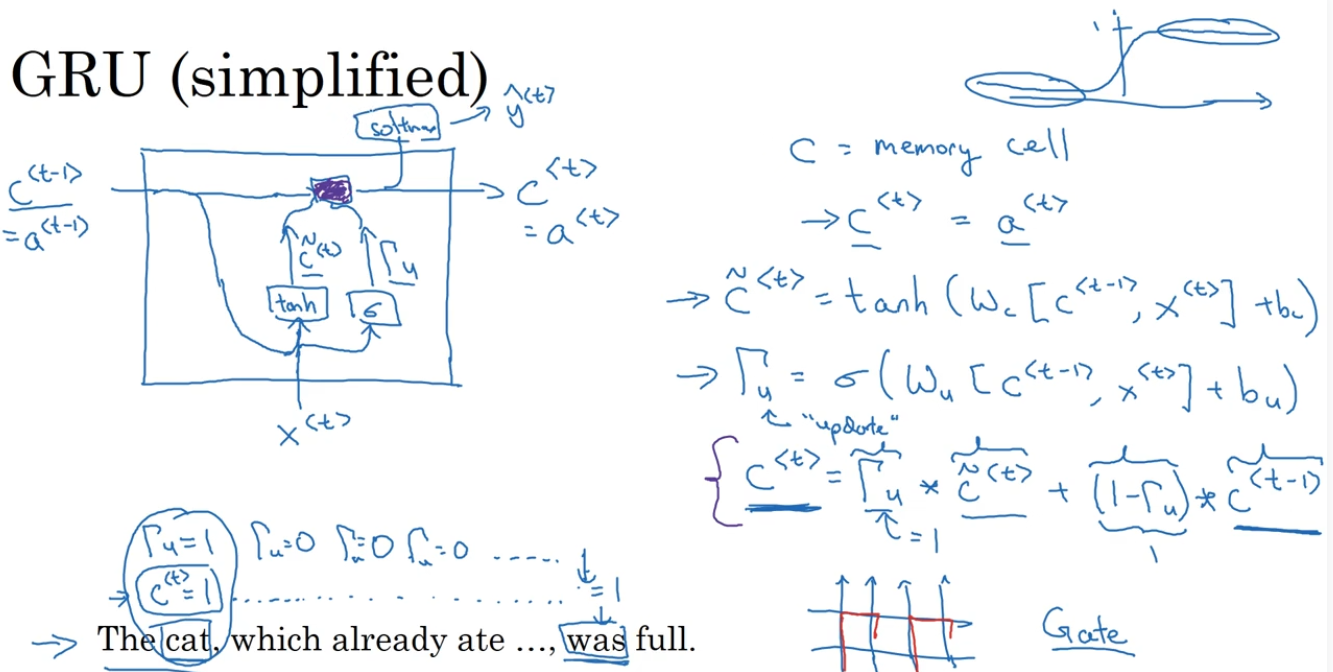 GRU (simplified)
softmax → ŷ<t>
c<t-1>
= a<t-1>
c<t>
= a<t>
c̃<t>
Γu
tanh
σ
x<t>
1
C = memory cell
→ c<t> = a<t>
→ c̃<t> = tanh (Wc [c<t-1>, x<t>] + bc)
→ Γu = σ(Wu [c<t-1>, x<t>] + bu)
"update"
{ c<t> = Γu * c̃<t> + (1-Γu) * c<t-1>
= 1
1
Gate
Γu=1 Γu=0 Γu=0 Γu=0 .....
c<t>=1 .............. =1
→ The cat, which already ate ..., was full.